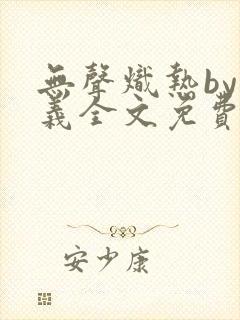 無聲熾熱by
義全文免費
安少康